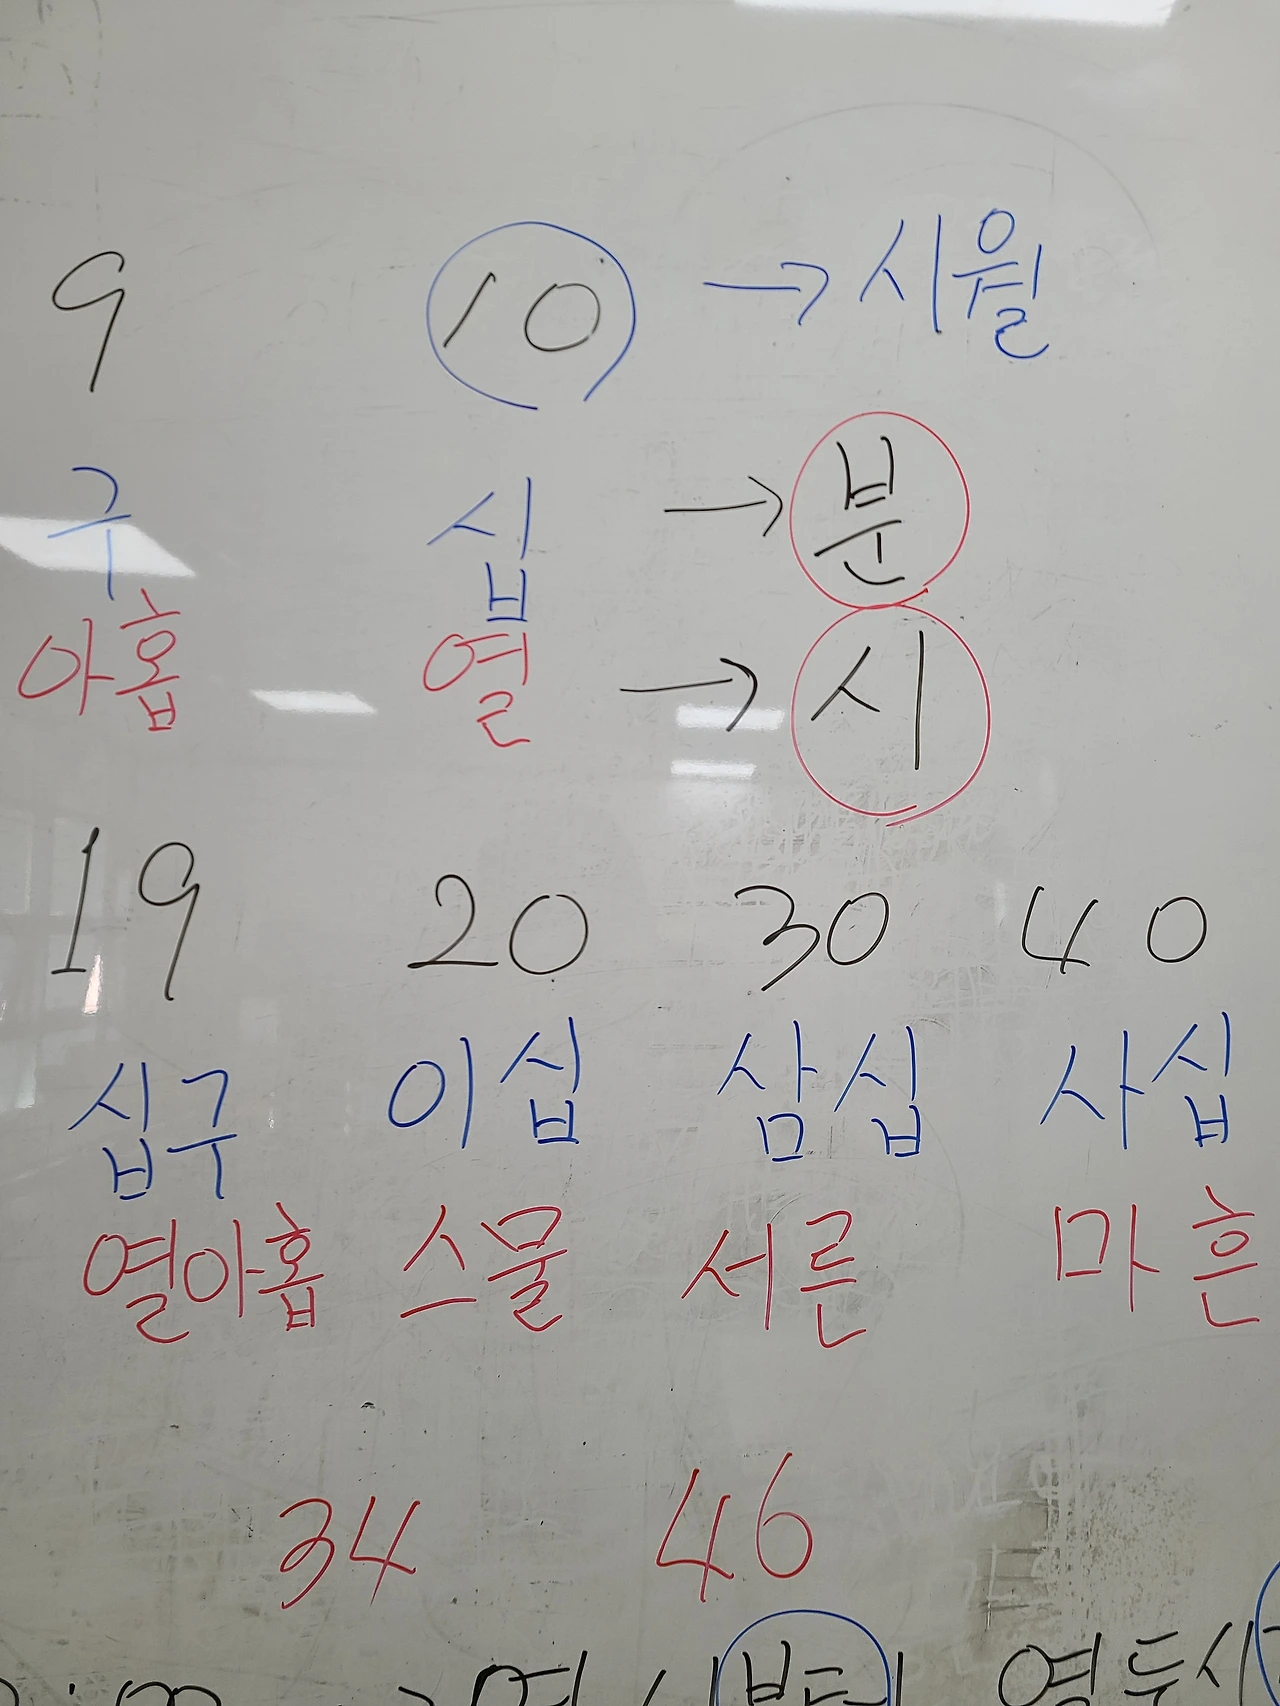 9 10 → 시월
구 십 → 분
아홉 열 → 시
19 20 30 40
십구 이십 삼십 사십
열아홉 스물 서른 마흔
34 46
열두시